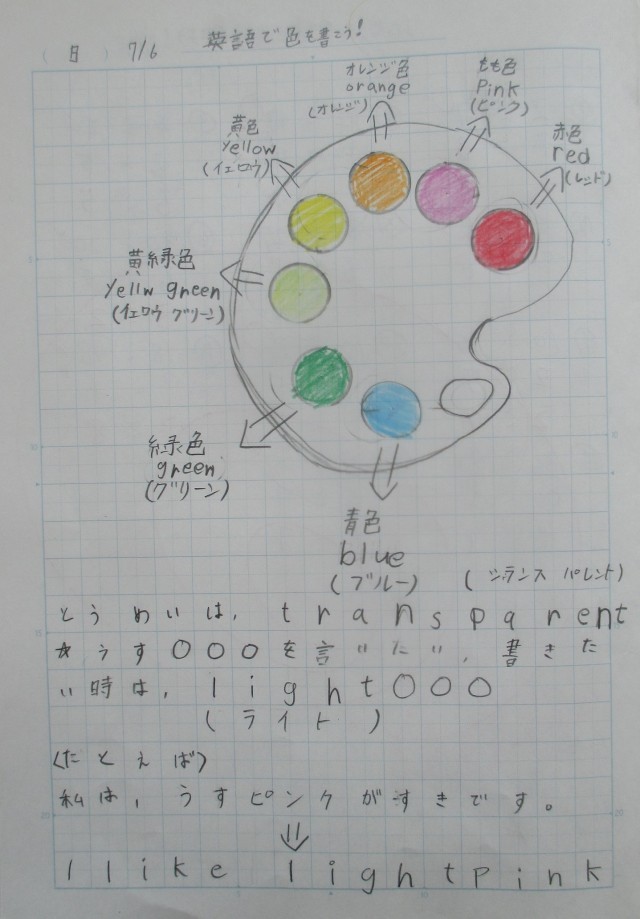 (日) 7/6 英語で色を書こう!
オレンジ色
orange
(オレンジ)
もも色
Pink
(ピンク)
黄色
yellow
(イエロウ)
赤色
red
(レッド)
黄緑色
yellw green
(イエロウ グリーン)
緑色
green
(グリーン)
青色
blue
(ブルー)
とうめいは、transparent
(シランス パレント)
☆うす〇〇〇を言いたい、書きた
い時は、light〇〇〇
(ライト)
(たとえば)
私は、うすピンクがすきです。
I like lightpink